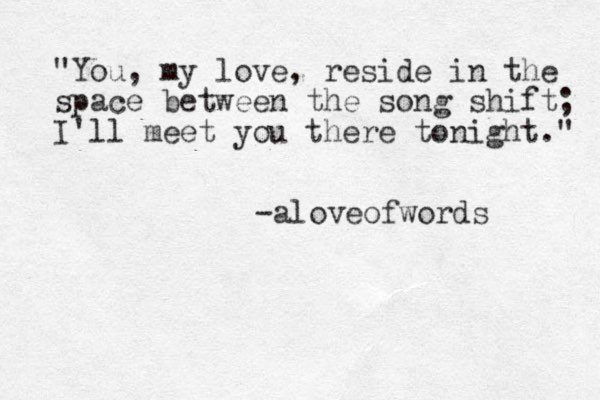 "You, my love, reside in the
space between the song shift;
I'll meet you there tonight."
-aloveofwords